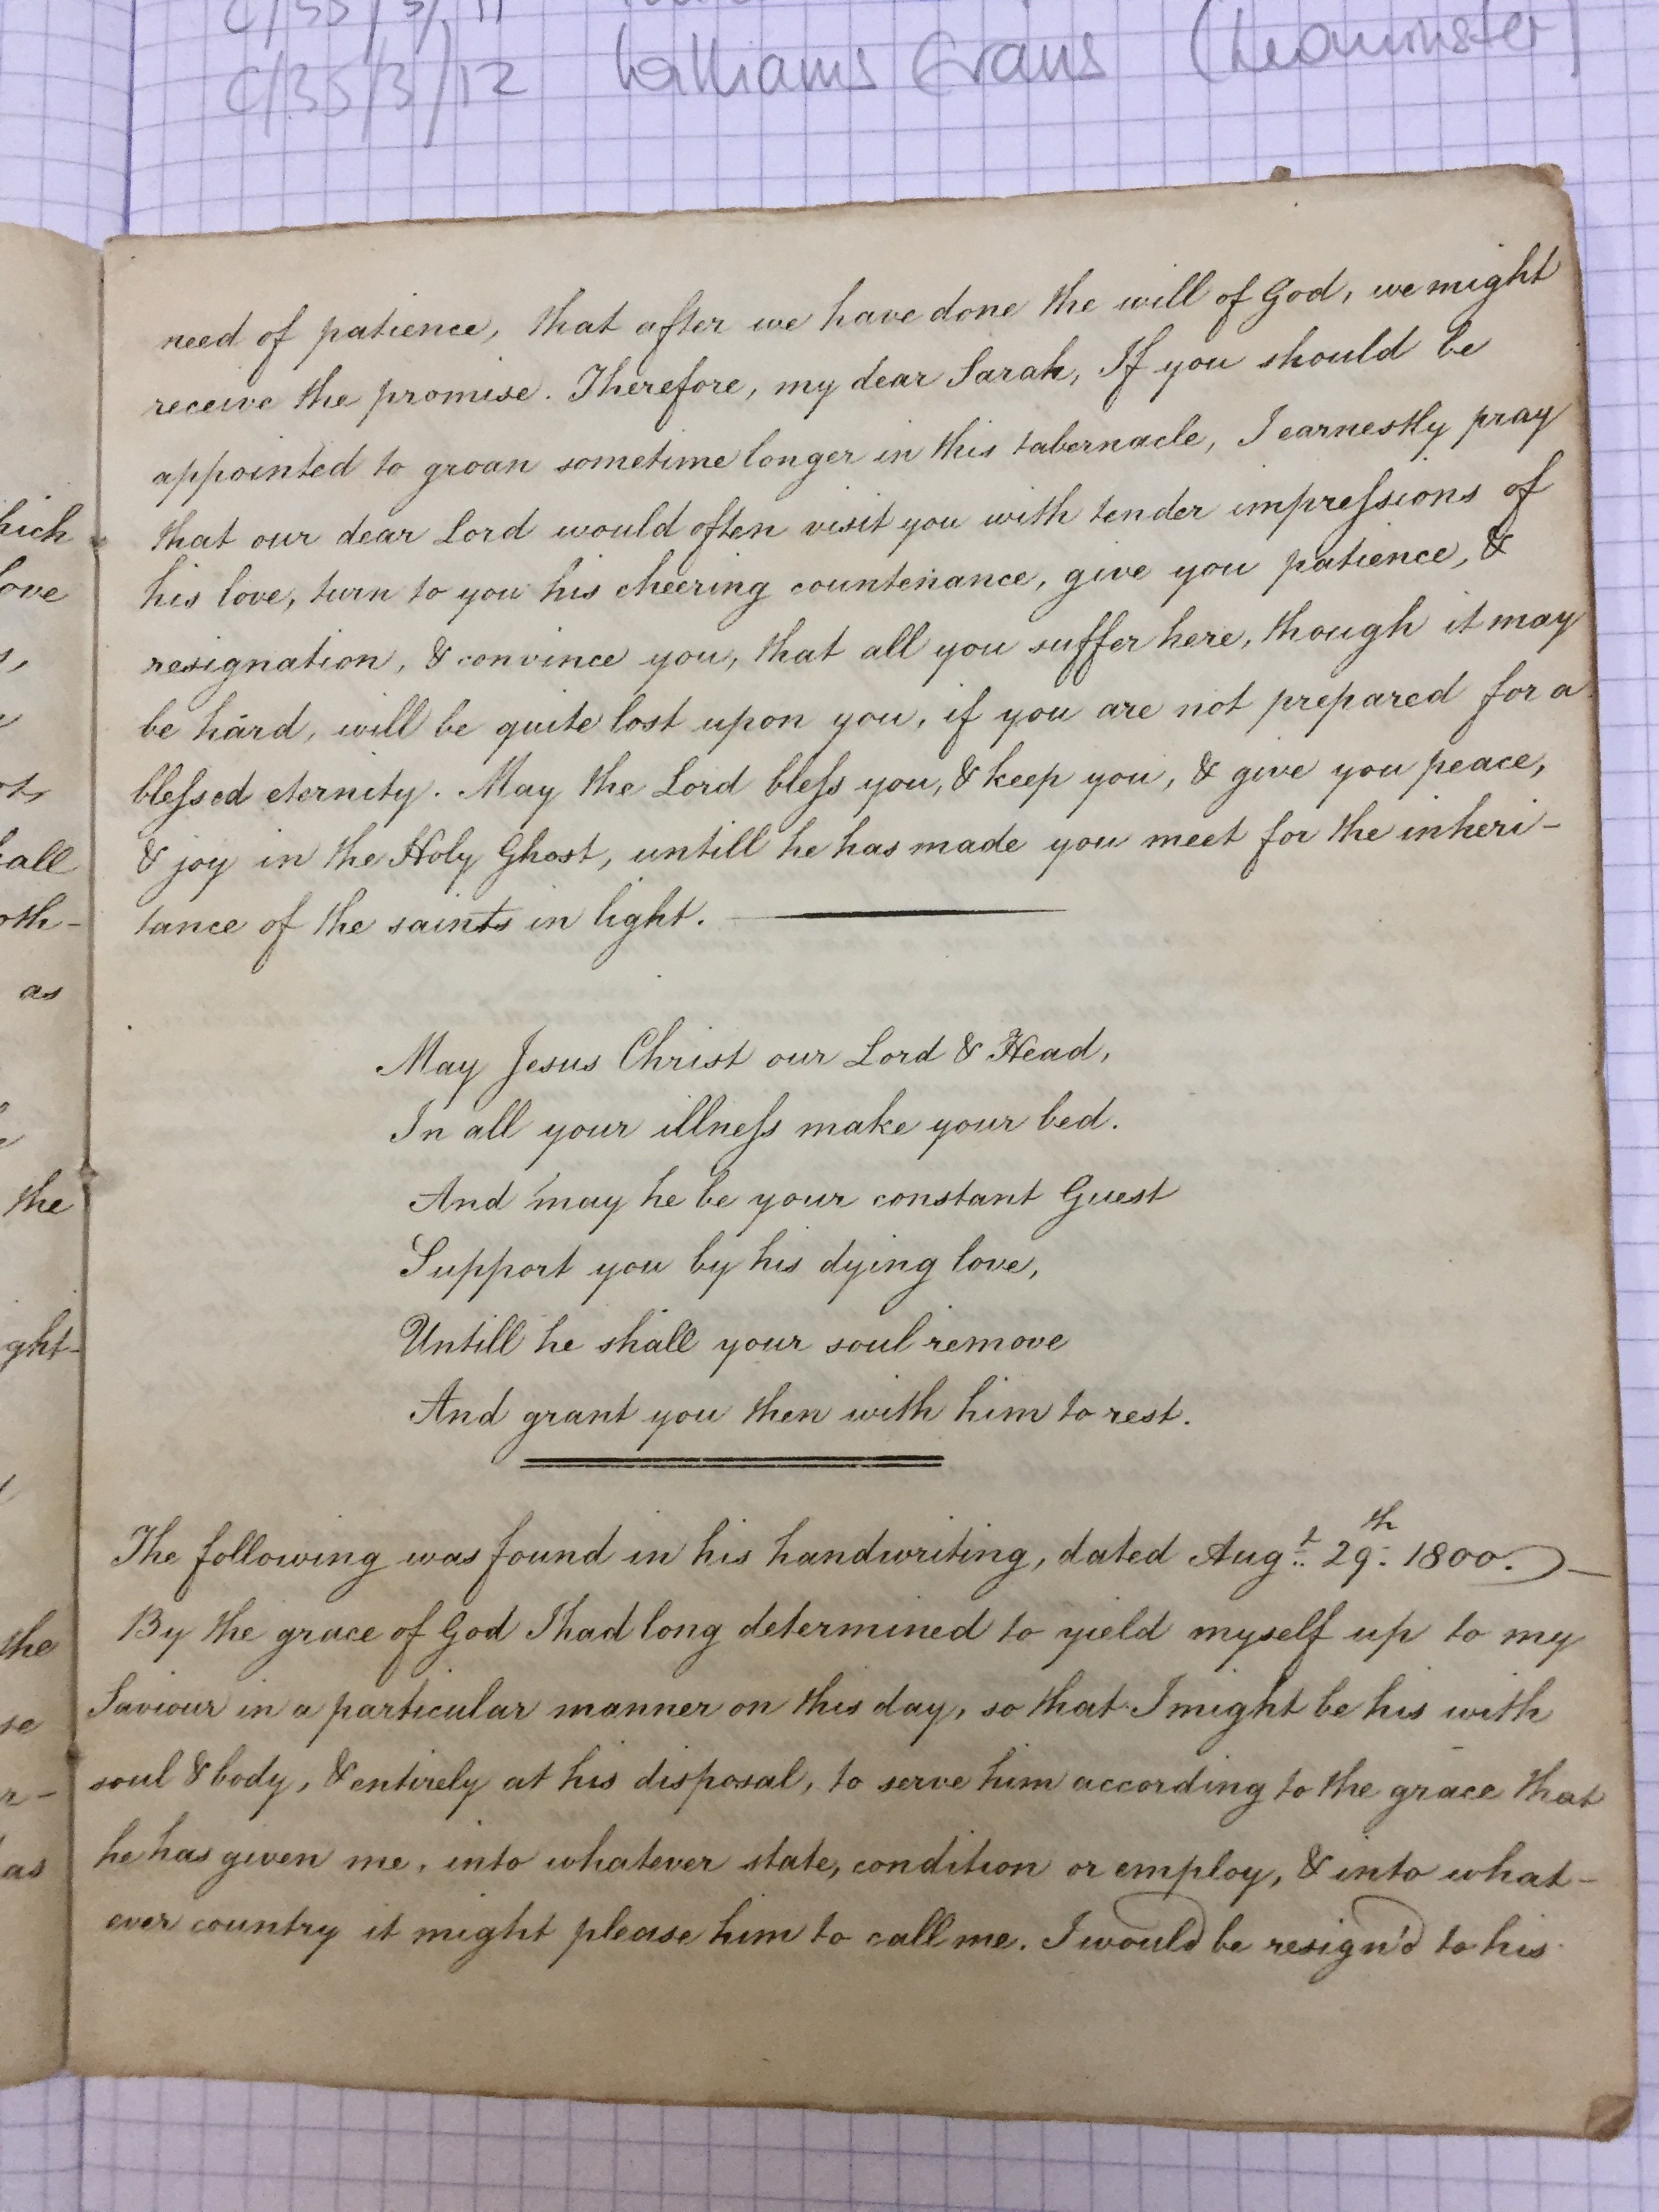 C/35/3/11
C/35/3/12 Williams Evans (Leominster)
need of patience, that after we have done the will of God, we might
receive the promise. Therefore, my dear Sarah, If you should be
appointed to groan sometime longer in this tabernacle, I earnestly pray
that our dear Lord would often visit you with tender impreſsions of
his love, turn to you his cheering countenance, give you patience, &
resignation, & convince you, that all you suffer here, though it may
be hard, will be quite lost upon you, if you are not prepared for a
bleſsed eternity. May the Lord bleſs you, & keep you, & give you peace,
& joy in the Holy Ghost, untill he has made you meet for the inheri-
tance of the saints in light.
May Jesus Christ our Lord & Head,
In all your illneſs make your bed.
And may he be your constant Guest
Support you by his dying love,
Untill he shall your soul remove
And grant you then with him to rest.
The following was found in his handwriting, dated Augt. 29th 1800.
By the grace of God I had long determined to yield myself up to my
Saviour in a particular manner on this day, so that I might be his with
soul & body, & entirely at his disposal, to serve him according to the grace that
he has given me, into whatever state, condition or employ, & into what-
ever country it might please him to call me. I would be resign'd to his
hich
love
all
oth-
as
the
ght-
the
se
as